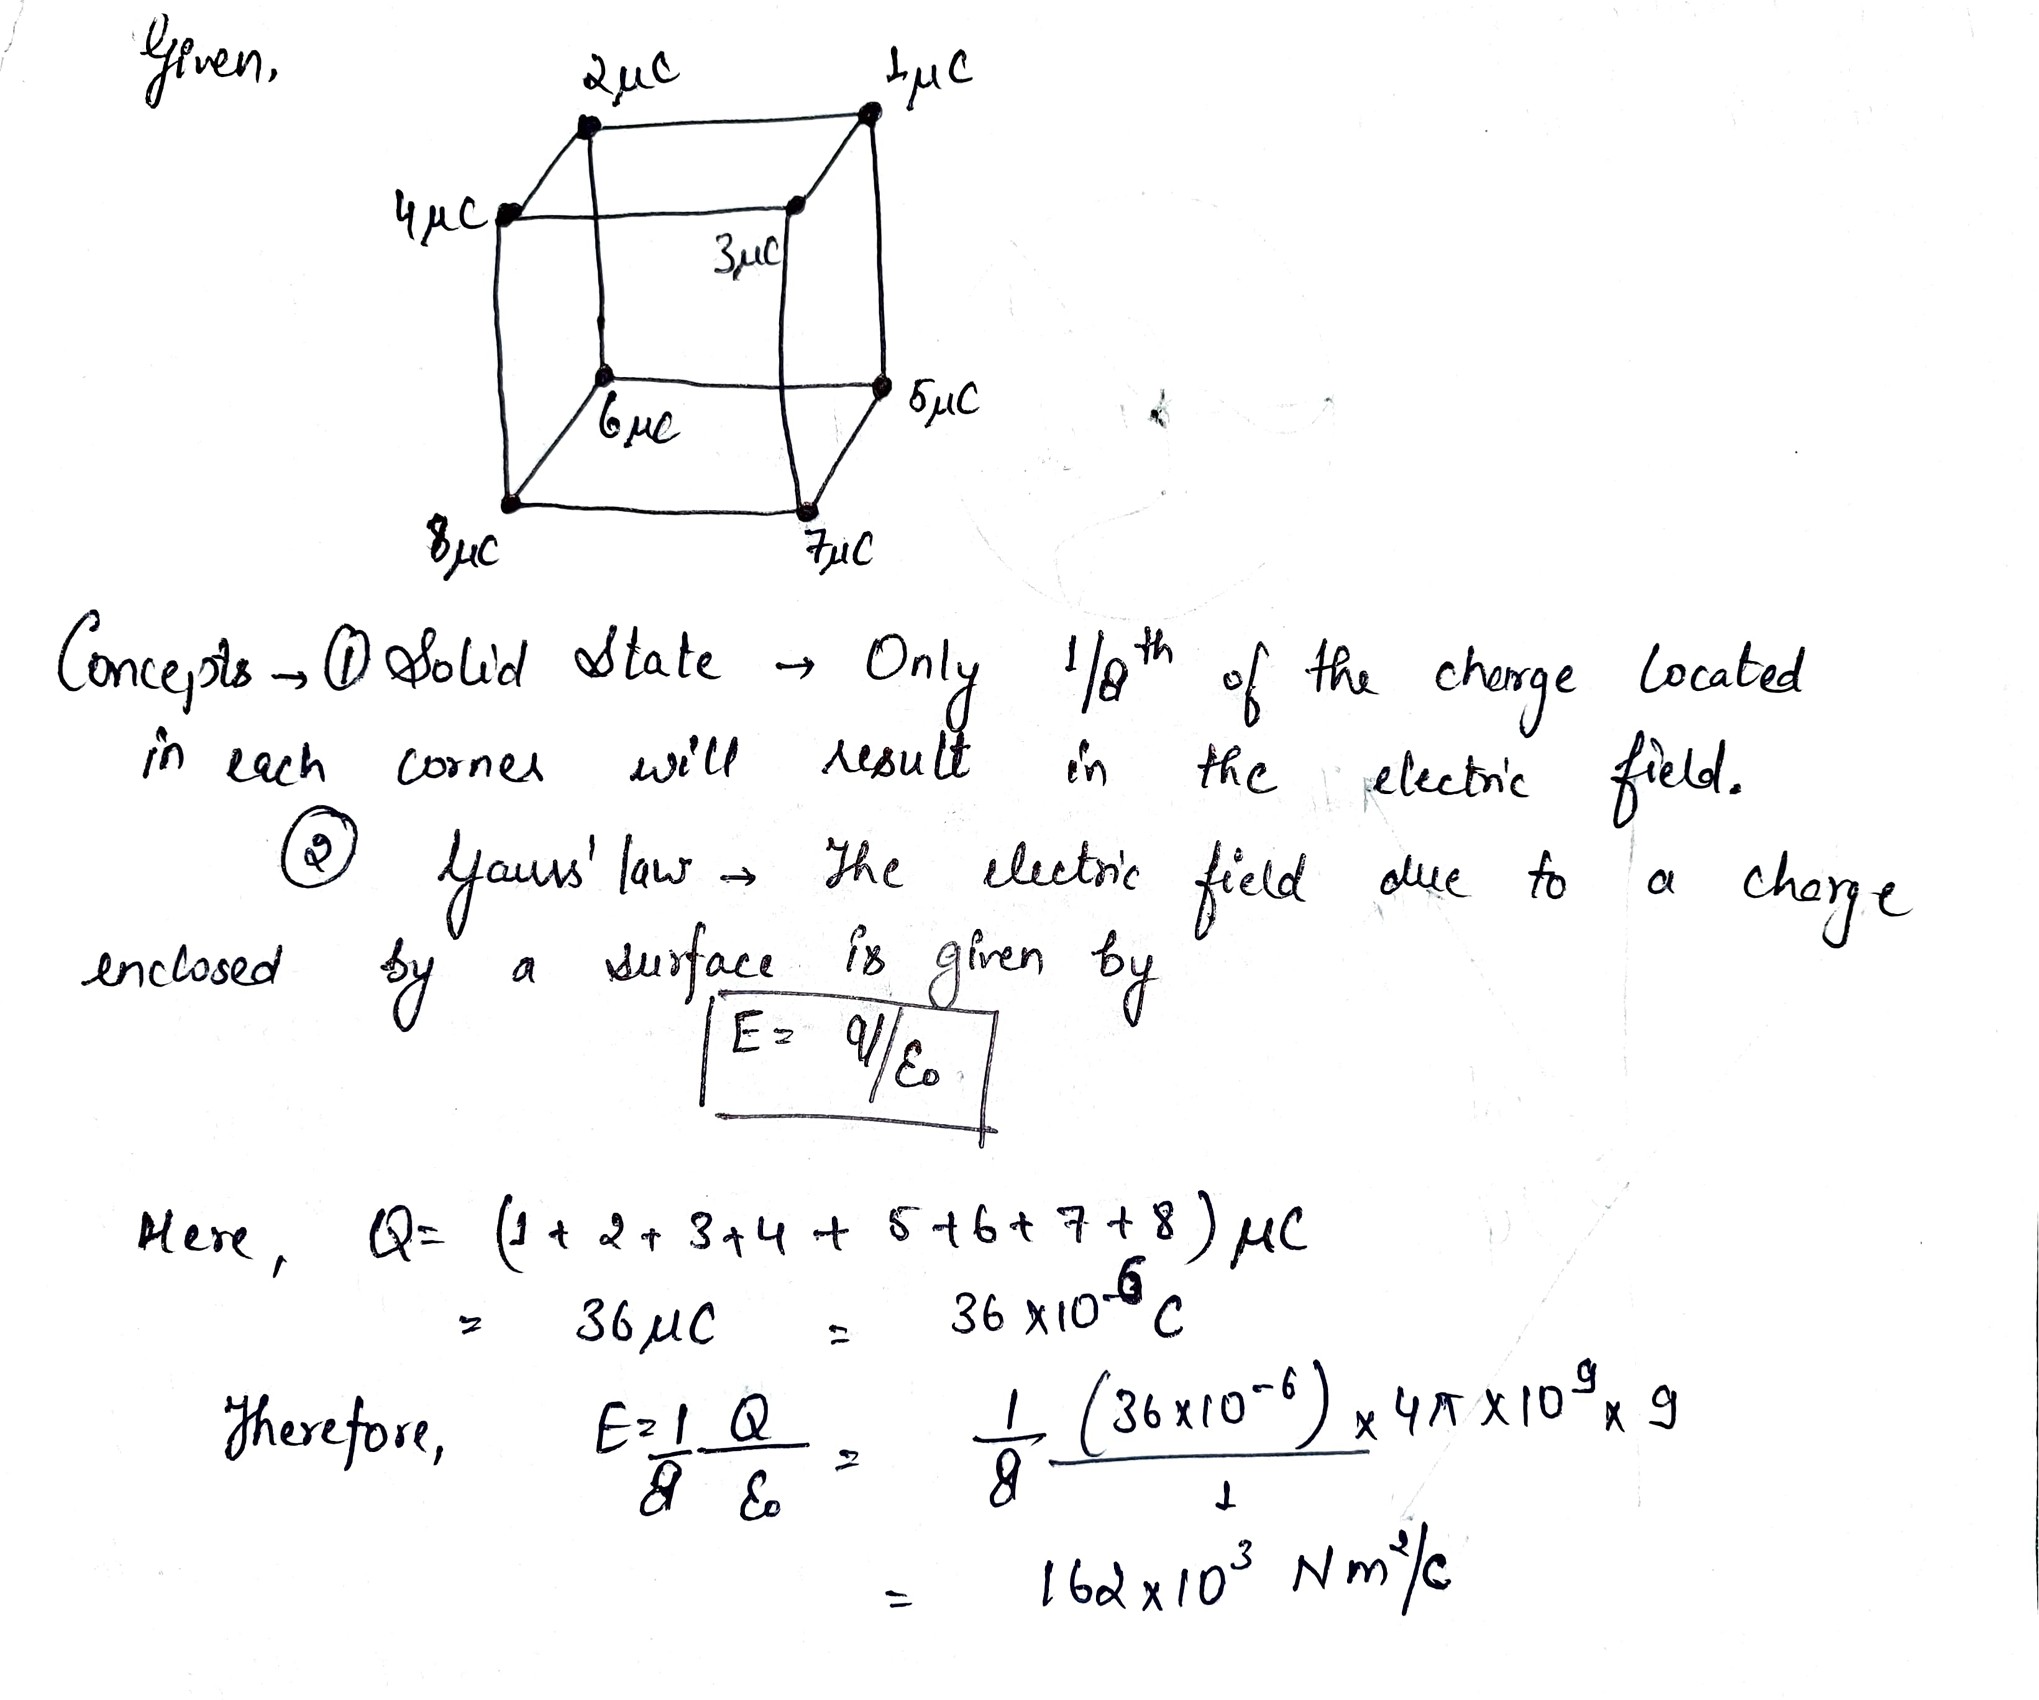 Given,
2μC
1μC
4μC
3μC
6μC
5μC
8μC
7μC
Concepts → ① Solid State → Only 1/8th of the charge located
in each corner will result in the electric field.
② Gauss' law → The electric field due to a charge
enclosed by a surface is given by
E = q/ε₀
Here, Q = (1 + 2 + 3 + 4 + 5 + 6 + 7 + 8) μC
= 36 μC = 36 × 10⁻⁶ C
Therefore, E = 1/8 Q/ε₀ = 1/8 (36×10⁻⁶) × 4π × 10⁹ × 9 / 1
= 162 × 10³ Nm²/C